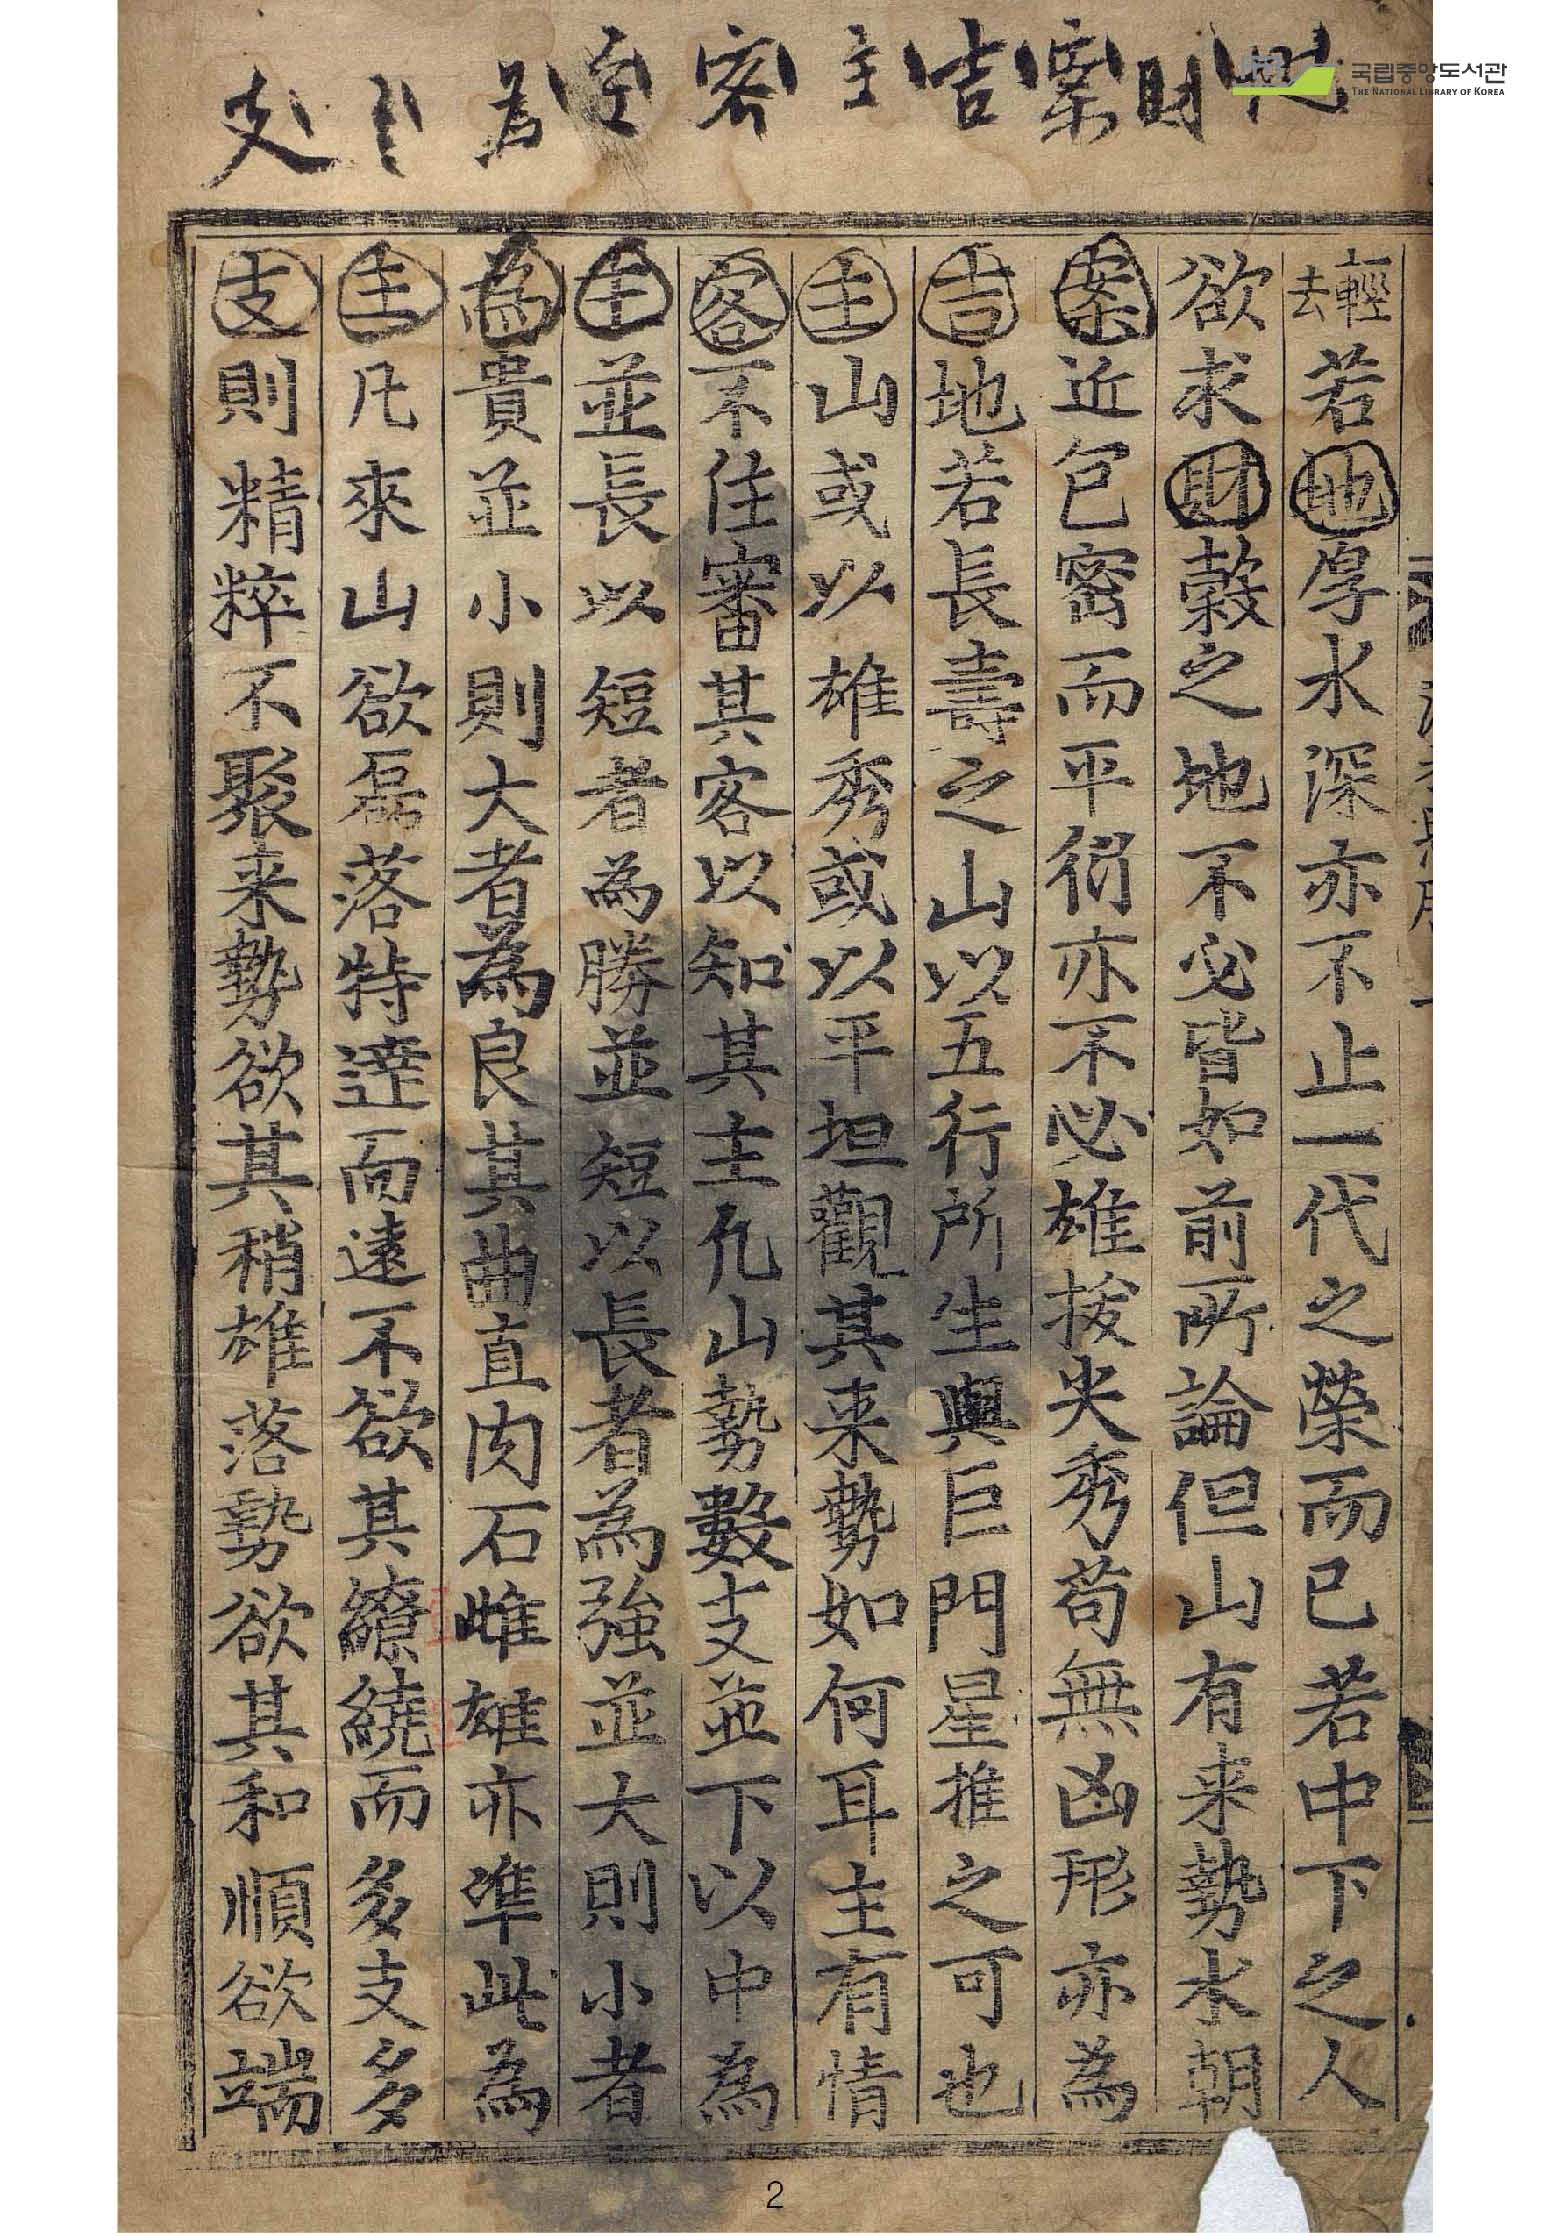 地財案吉主客主為主支
국립중앙도서관
THE NATIONAL LIBRARY OF KOREA
輕去若地厚水深亦不止一代之榮而已若中下之人
欲求財糓之地不必皆如前所論但山有来勢水朝
案近包密而平衍亦不必雄拔尖秀苟無凶形亦為
吉地若長壽之山以五行所生與巨門星推之可也
主山或以雄秀或以平坦觀其来勢如何耳主有情
客不住審其客以知其主凡山勢數支並下以中為
主並長以短者為勝並短以長者為強並大則小者
為貴並小則大者為良其曲直肉石雌雄亦準此為
主凡來山欲磊落特達而遠不欲其繚繞而多支多
支則精粹不聚来勢欲其稍雄落勢欲其和順欲端
2